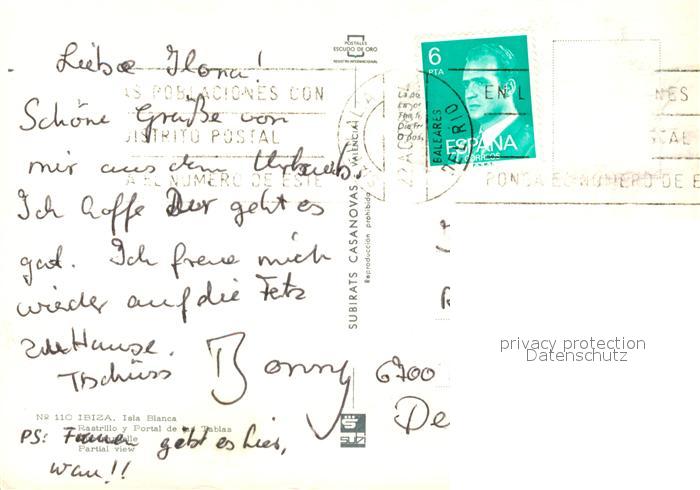 Liebe Ilona!
Schöne Grüße von
mir aus dem Urlaub.
Ich hoffe Dir geht es
gut. Ich freue mich
wieder auf die Fetz
zu Hause.
Tschüss Bonny
PS: Frauen gibt es hier,
wau!!
Nº 110 IBIZA. Isla Blanca
Rastrillo y Portal de las Tablas
Partial view
POSTALES
ESCUDO DE ORO
REGISTRO INTERNACIONAL
SUBIRATS CASANOVAS
VALENCIA
Reproducción prohibida
AS POBLACIONES CON
DISTRITO POSTAL
A EL NUMERO DE ESTE
BALEARES
6
PTA
ESPAÑA
CORREOS
EN L
NES
PONGA EL NUMERO DE E
6700
De
privacy protection
Datenschutz